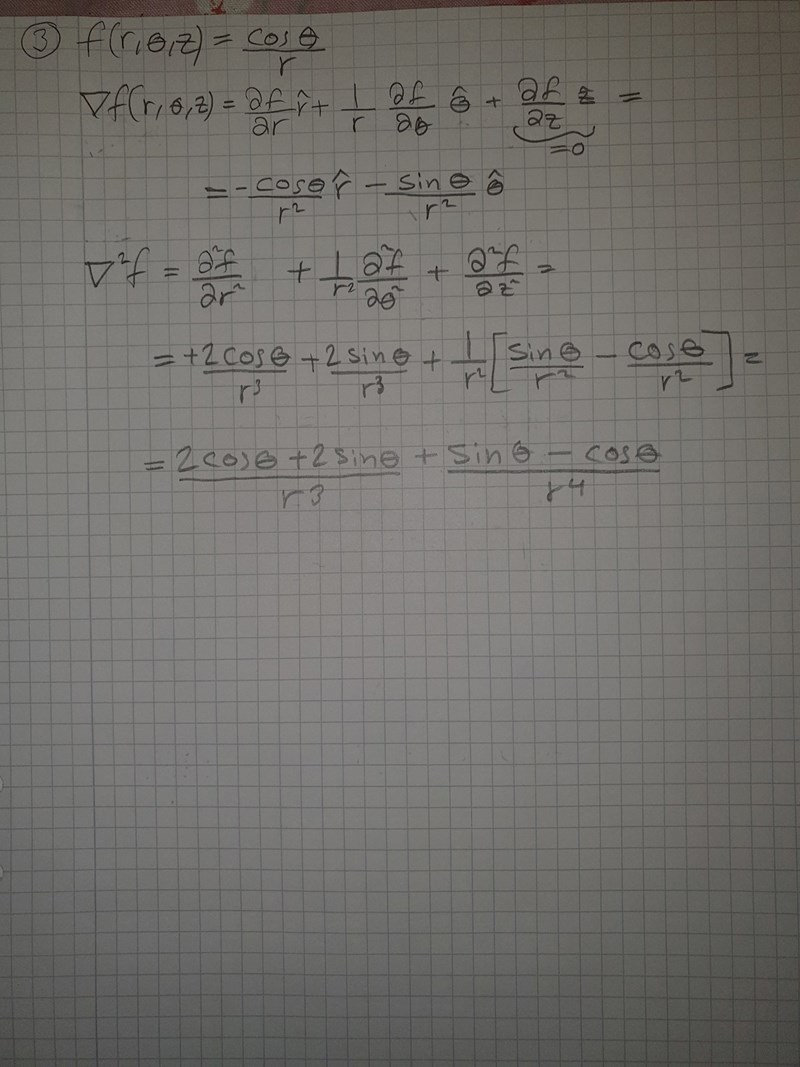 ③ f(r,θ,z) = cosθ/r
∇f(r,θ,z) = ∂f/∂r r̂ + 1/r ∂f/∂θ θ̂ + ∂f/∂z z =
=0
= -cosθ/r² r̂ - sinθ/r² θ̂
∇²f = ∂²f/∂r² + 1/r² ∂²f/∂θ² + ∂²f/∂z² =
= +2cosθ/r³ + 2sinθ/r³ + 1/r² [sinθ/r² - cosθ/r²] =
= (2cosθ+2sinθ)/r3 + (sinθ - cosθ)/r4